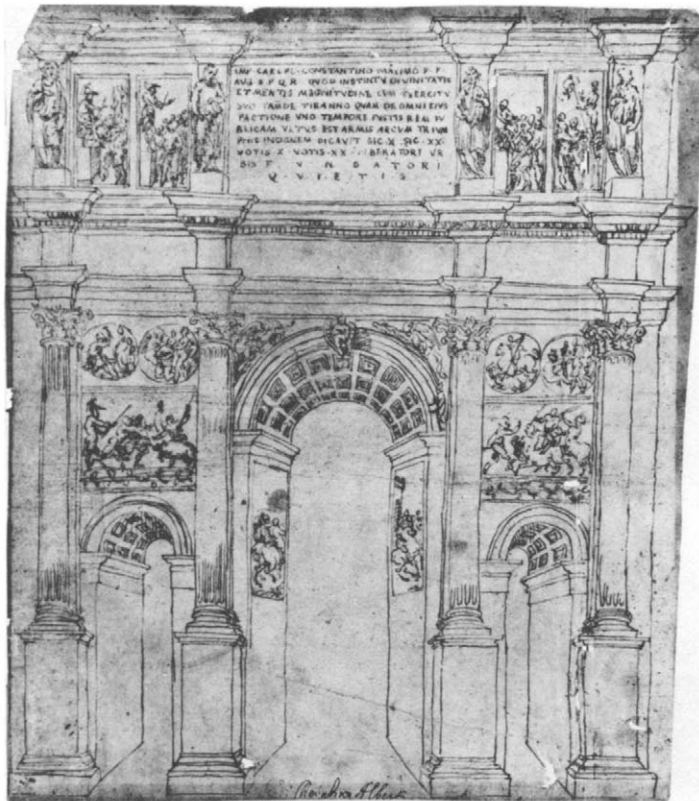 IMP CAES FL CONSTANTINO MAXIMO P F
AVG S P Q R QVOD INSTINTV DIVINITATIS
ET MENTIS MAGNITVDINE CVM EXERCITV
SVO TAM DE TIRANNO QVAM DE OMNI EIVS
FACTIONE VNO TEMPORE IVSTIS REM PV
BLICAM VLTVS EST ARMIS ARCVM TRIVM
PHIS INSIGNEM DICAVIT SIC·X·SIC·XX·
VOTIS·X·VOTIS·XX· LIBERATORI VR
BIS F V N D A T O R I
Q V I E T I S
Albert